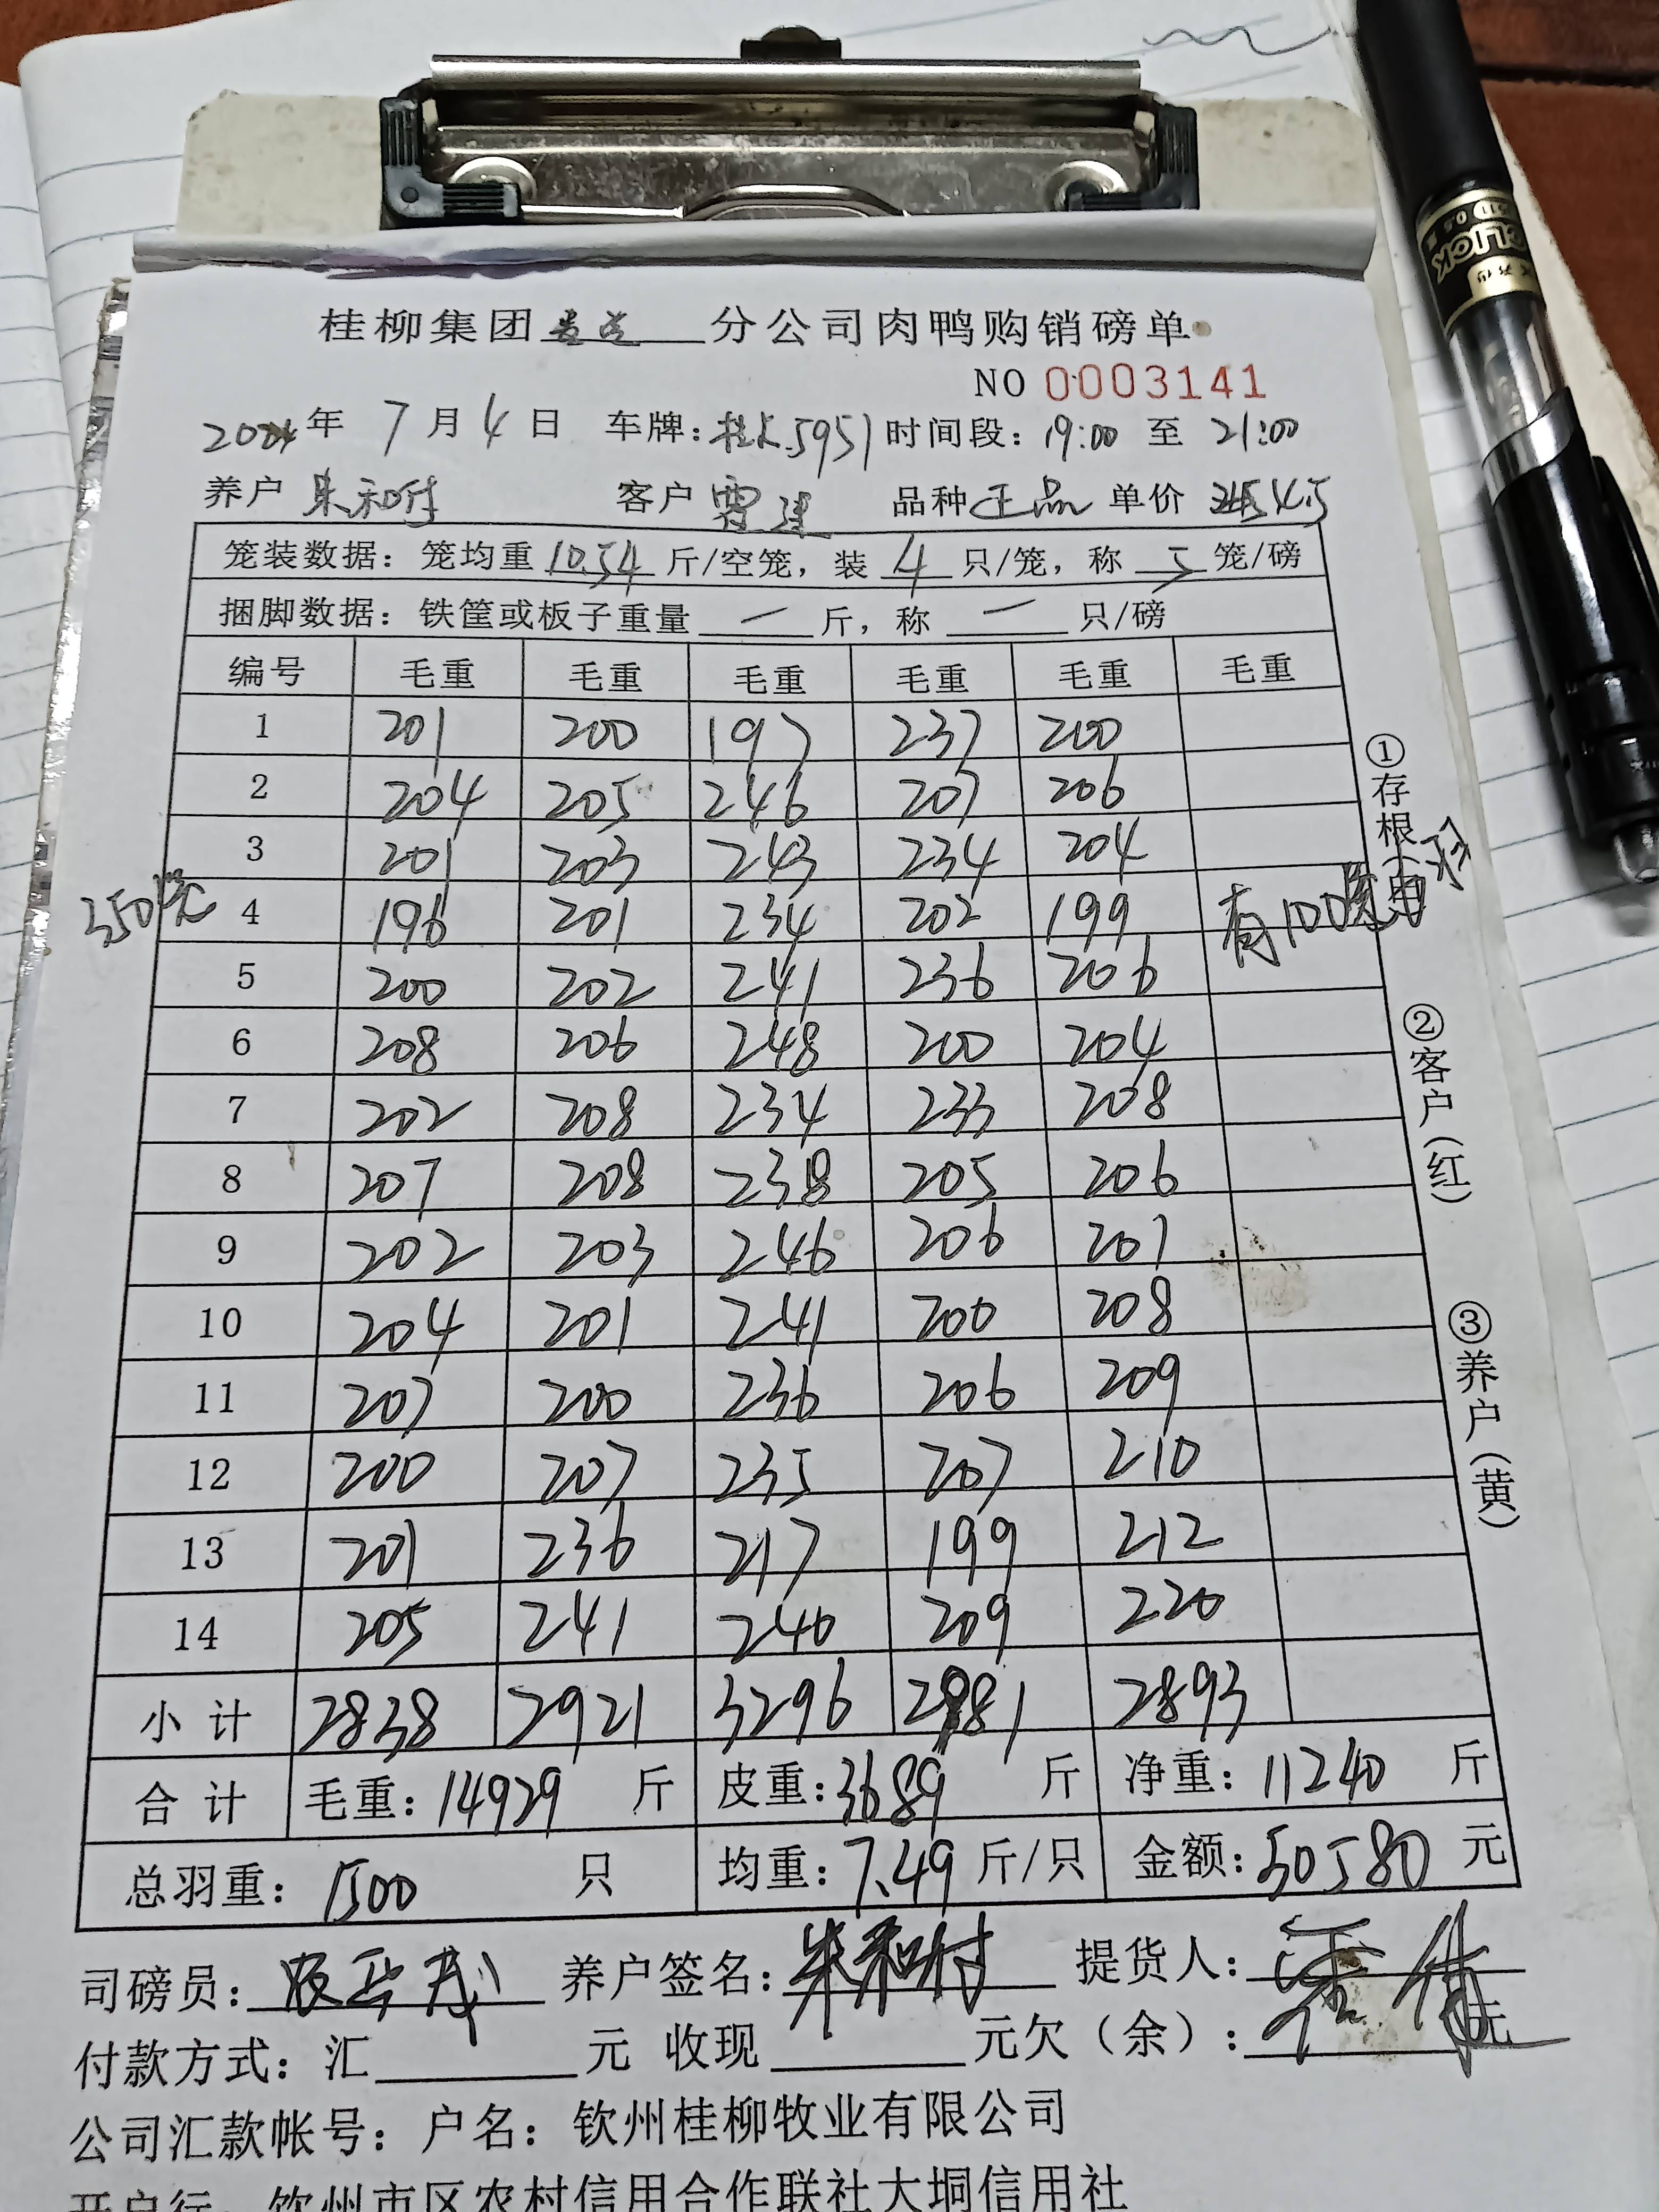 桂柳集团 分公司肉鸭购销磅单
NO 0003141
年 7月4日 车牌: 5951 时间段: 19:00 至 21:00
养户 朱和付 客户 雷建 品种 正品 单价 4.5
笼装数据: 笼均重 10.54 斤/空笼, 装 4 只/笼, 称 5 笼/磅
捆脚数据: 铁筐或板子重量 一 斤, 称 一 只/磅
编号 毛重 毛重 毛重 毛重 毛重 毛重
1 201 200 197 237 200
2 204 205 246 207 206
3 201 203 243 234 204
350 4 196 201 234 202 199 有100
5 200 202 241 236 206
6 208 206 248 200 204
7 202 208 234 233 208
8 207 208 238 205 206
9 202 203 246 206 201
10 204 201 241 200 208
11 207 200 236 206 209
12 200 207 235 207 210
13 201 236 217 199 212
14 205 241 240 209 220
小计 2838 2921 3296 2981 2893
合计 毛重: 14929 斤 皮重: 3689 斤 净重: 11240 斤
总羽重: 1500 只 均重: 7.49 斤/只 金额: 50580 元
司磅员: 养户签名: 朱和付 提货人:
付款方式: 汇 元 收现 元欠(余): 元
公司汇款帐号: 户名: 钦州桂柳牧业有限公司
开户行: 钦州市区农村信用合作联社大垌信用社
①存根(白)
②客户(红)
③养户(黄)
CLICK